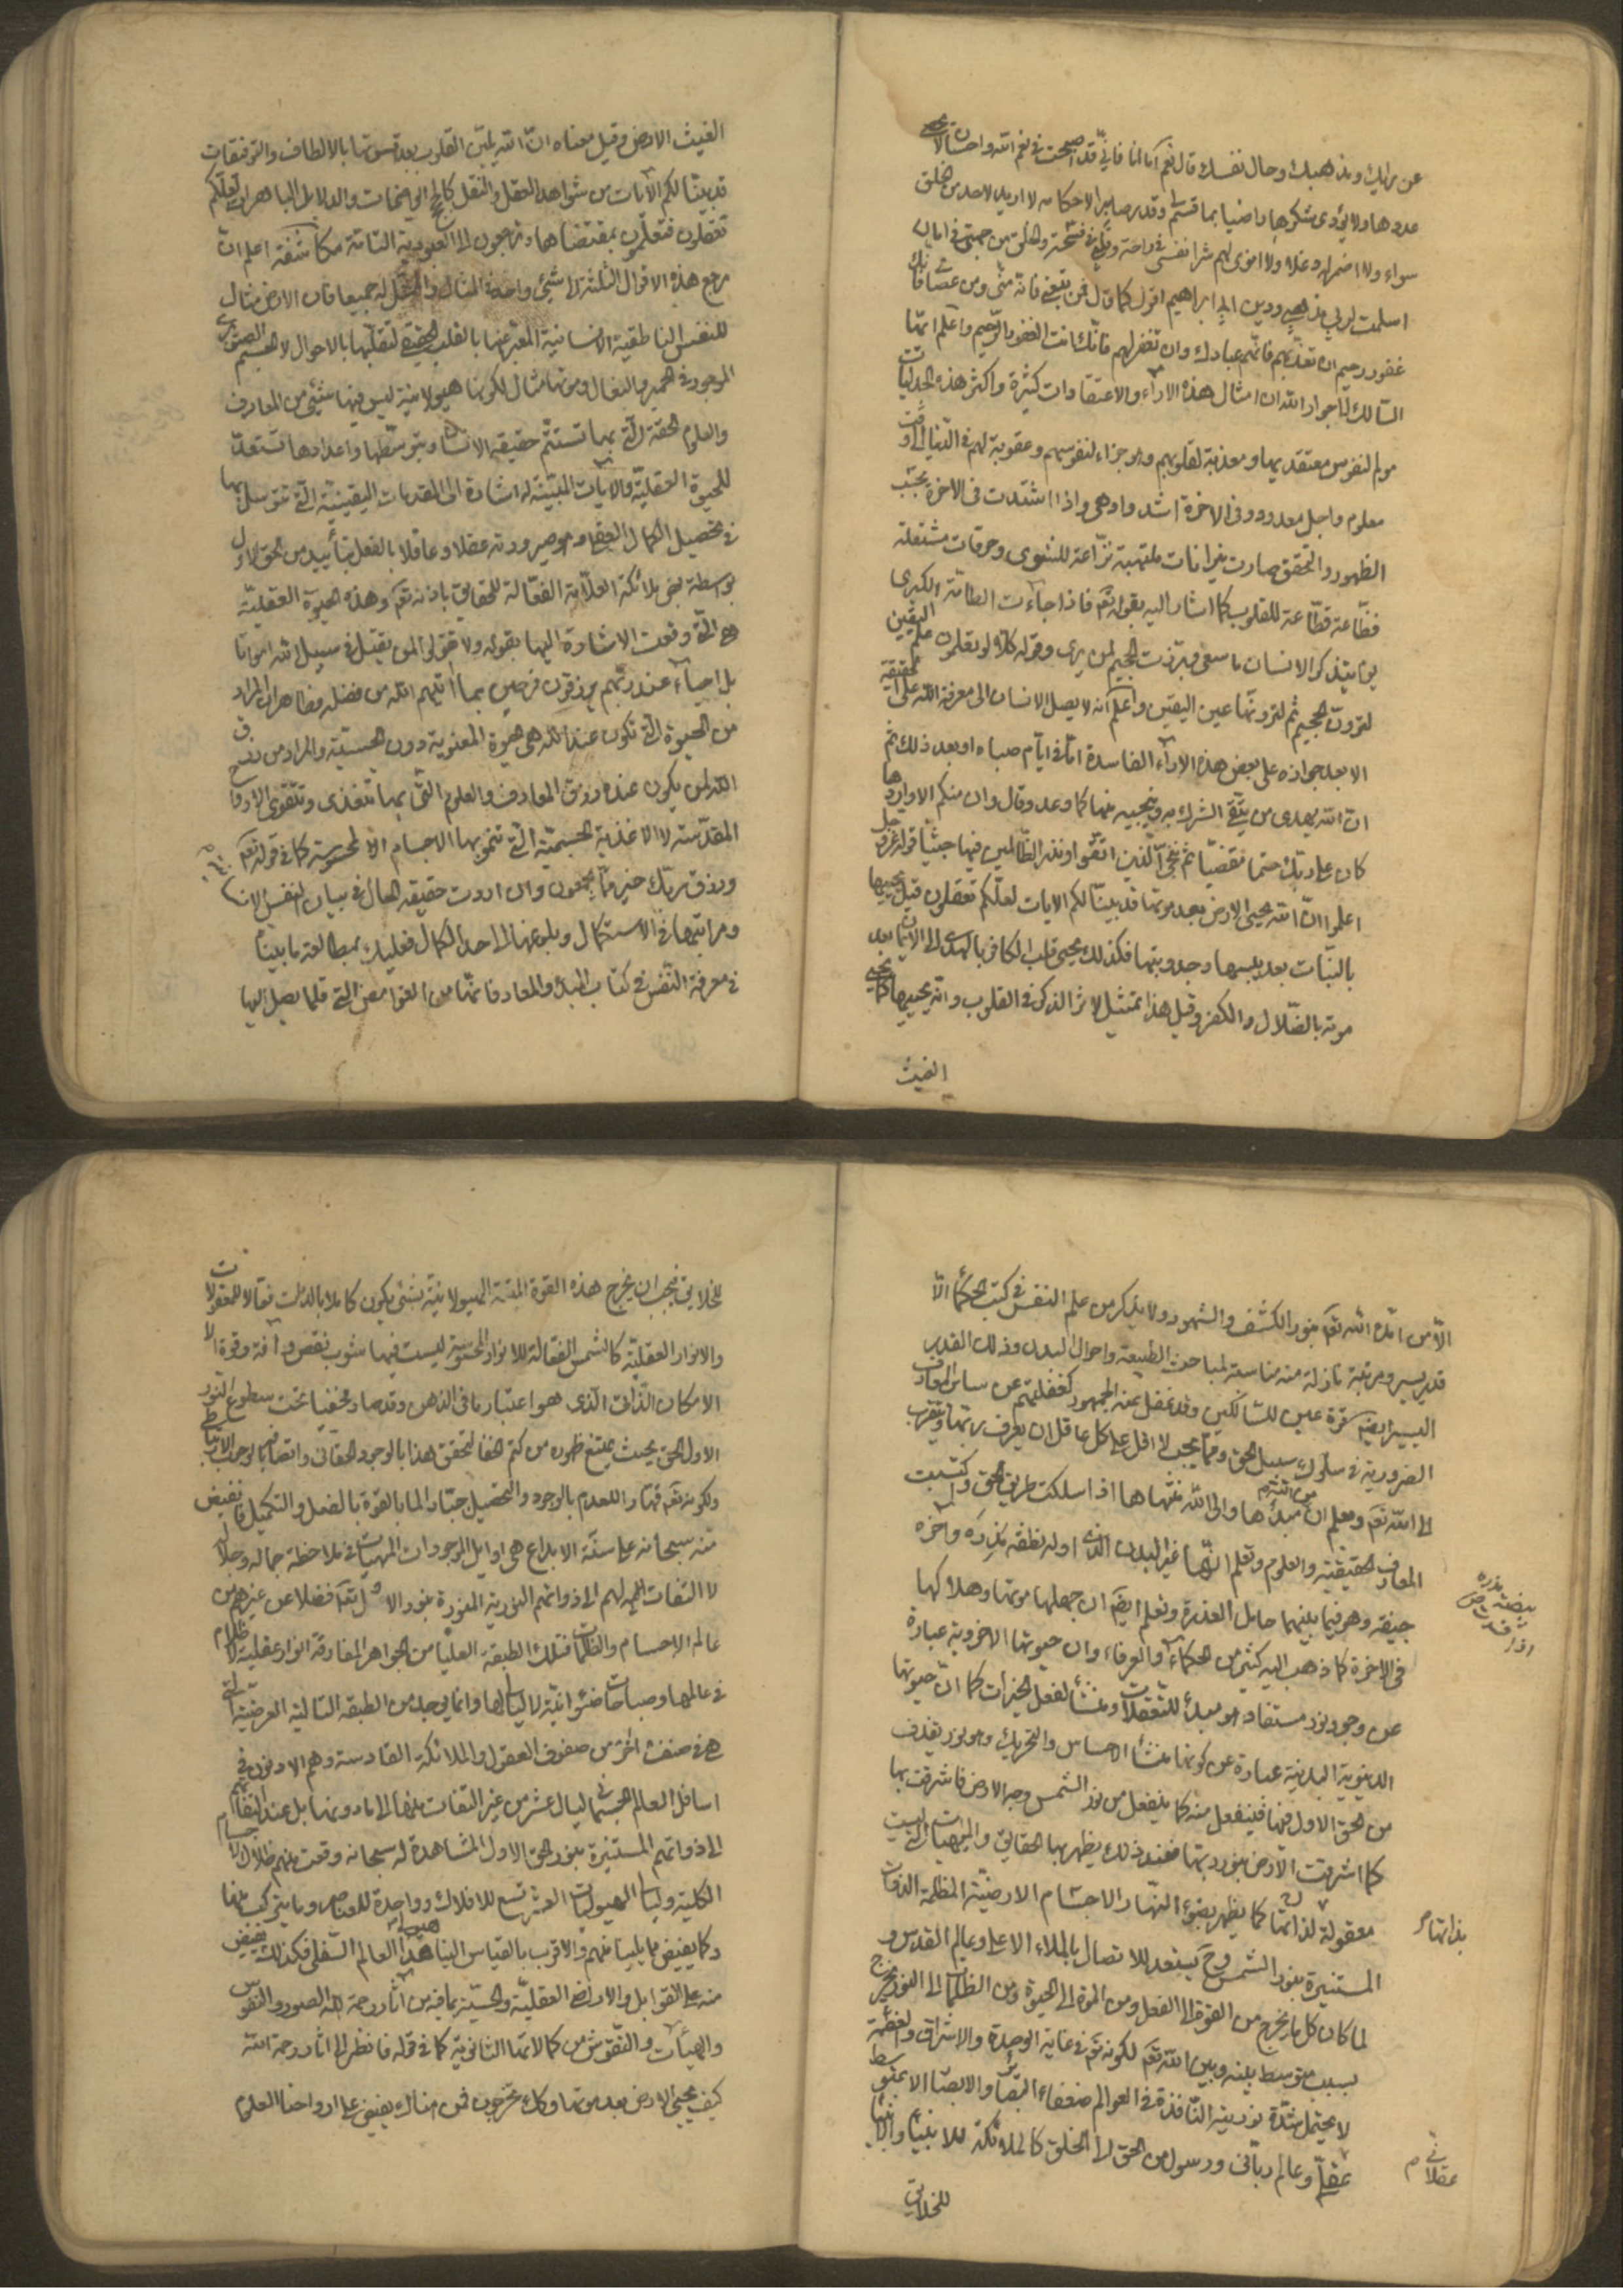 عن رايك ومذهبك وحال نفسك قال نعم اما انا فاني قد اصبحت في نعم الله واحسان لا احصى
عددها ولا يؤدى شكرها راضيا بما قسم لي وقدر صابرا لاحكامه لا اريد لاحد من الخلق
سوء ولا اضمر لهم دغلا ولا انوى لهم شرا نفسي في راحة وقلبي في فسحة والخلق من جهتي في امان
اسلمت لربي مذهبي وديني ابي ابراهيم اقول كما قال فمن تبعني فانه مني ومن عصاني فانك
غفور رحيم ان تعذبهم فانهم عبادك وان تغفر لهم فانك انت الغفور الرحيم واعلم ايها
السالك الى جوار الله ان امثال هذه الاراء والاعتقادات كثيرة واكثر هذه الجدليات
مولم لنفوس معتقديها ومعذبة لقلوبهم وهو جزاء لنفوسهم وعقوبة لهم في الدنيا الى وقت
معلوم واجل معدود وفى الاخرة اشد وادهى واذا اشتدت فى الاخرة بحسب
الظهور والتحقق صارت نيرانات ملتهبة نزاعة للشوى وحرقات مشتعلة
قطاعة للقلوب كما اشار اليه بقوله تعم فاذا جاءت الطامة الكبرى
يوم يتذكر الانسان ما سعى وبرزت الجحيم لمن يرى وقوله كلا لو تعلمون علم اليقين
لترون الجحيم ثم لترونها عين اليقين واعلم انه لا يصل الانسان الى معرفة الله على الحقيقة
الا بعد جوازه على بعض هذه الاراء الفاسدة اما في ايام صباه او بعد ذلك ثم
ان الله يهدى من يتقى الشرك به وينجيه منها كما وعد وقال وان منكم الا واردها
كان على ربك حتما مقضيا ثم ننجى الذين اتقوا ونذر الظالمين فيها جثيا قوله عز وجل
اعلموا ان الله يحيى الارض بعد موتها قد بينا لكم الايات لعلكم تعقلون قيل يحييها
بالنبات بعد يبسها وجدوبتها فكذلك يحيى قلب الكافر بالهدى الى الايمان بعد
موته بالضلال والكفر وقيل هذا تمثيل لاثر الذكر في القلوب وانه يحييها كما يحيى
الغيث
الغيث الارض وقيل معناه ان الله يلين القلوب بعد قسوتها بالالطاف والتوفيقات
قد بينا لكم الايات من شواهد العقل والنقل كالحجج الواضحات والدلايل الباهرات لعلكم
تعقلون فتعلمون بمقتضاها وترجعون الى العبودية التامة مكاشفة اعلم ان
مرجع هذه الاقوال الثلثة الى شيئ واحد المثال والممثل له جميعا فان الارض مثال
للنفس الناطقية الانسانية المعبر عنها بالقلب الحقيقي لتقلبها بالاحوال لا الجسم الصنوبرى
الموجود في الحمير والبغال وموتها مثال لكونها هيولانية ليس فيها شيئ من المعارف
والعلوم الحقة التي بها تستتم حقيقة الانسان وبتوسطها واعدادها تستعد
للحيوة العقلية والايات المبينة له اشارة الى المقدمات اليقينية التي تتوسل بها
في تحصيل الكمال العقلى وصيرورته عقلا وعاقلا بالفعل بتأييد من الحق الاول
بواسطة بعض ملائكته العلامة الفعالة للحقايق باذنه تعم وهذه الحيوة العقلية
هى التي وقعت الاشارة اليها بقوله ولا تقولوا لمن يقتل في سبيل الله امواتا
بل احياء عند ربهم يرزقون فرحين بما آتيهم الله من فضله فظاهر ان المراد
من الحيوة التي تكون عند الله هى الحيوة المعنوية دون الحسية والمراد من رزق
الله لمن يكون عنده رزق المعارف والعلوم التى بها تتغذى وتتقوى الارواح
المقدسة لا الاغذية الجسمية التي تنمو بها الاجسام المحسوسة كما في قوله تعم
ورزق ربك خير مما يجمعون وان اردت حقيقة الحال في بيان النفس الانسانية
ومراتبها في الاستكمال وبلوغها الى احد الكمال فعليك بمطالعة ما بينا
في معرفة النفس في كتاب المبدأ والمعاد فانها من الغوامض التي قلما يصل اليها
الا من ايده الله تعم بنور الكشف والشهود ولا يذكر من علم النفس في كتب الحكماء الا
قدر يسير ومرتبة نازلة منه مناسبة لمباحث الطبيعة واحوال البدن وذلك القدر
اليسير ايضا قرة عين للسالكين وقد غفل عنه الجمهور كغفلتهم عن ساير المعارف
الضرورية في سلوك سبيل الحق ومما يجب لا اقل على كل عاقل ان يعرف ربها ويتقرب
الى الله تعم ويعلم ان من الله مبدأها والى الله منتهاها اذا سلكت طريق الحق واكتسبت
المعارف الحقيقية والعلوم وتعلم انها غير البدن الذى اوله نطفة قذرة واخره
جيفة وهو فيما بينهما حامل العذرة وتعلم ايضا ان جهلها موتها وهلاكها
فى الاخرة كما ذهب اليه كثير من الحكماء والعرفاء وان حيوتها الاخروية عبارة
عن وجود نور مستفاد هو مبدأ للتعقلات ومنشأ لفعل الخيرات كما ان حيوتها
الدنيوية البدنية عبارة عن كونها منشأ الاحساس والتحريك وهو نور يقذف
من الحق الاول فيها فينفعل منه كما ينفعل من نور الشمس وجه الارض فاشرقت بها
كما اشرقت الارض بنور ربها فعند ذلك يظهر بها الحقايق والمهيات التى ليست
معقولة لذاتها كما يظهر بضوء النهار الاجسام الارضية المظلمة الذوات
المستنيرة بنور الشمس وح يستعد للاتصال بالملاء الاعلى وعالم القدس و
لما كان كل ما يخرج من القوة الى الفعل ومن الموت الى الحيوة ومن الظلمات الى النور يخرج
بسبب متوسط بينه وبين الله تعم لكونه تعم في غاية الوحدة والاشراق والعظمة
لا يحتمل شدة نوريته النافذة في العوالم ضعفاء البصائر والابصار الا بمتوسط
عقلى وعالم ربانى ورسول من الحق الى الخلق كالملائكة للانبياء والانبياء
للخلايق
بذاتها م
عقلانى م
للخلايق فيجب ان يخرج هذه القوة الميتة الهيولانية بشئ يكون كاملا بالذات فعالا للمعقولات
والانوار العقلية كالشمس الفعالة للانوار المحسوسة ليست فيها شوب نقص وآفة وقوة الا
الامكان الذاتى الذى هو اعتبار ما فى الذهن وقد صار مختفيا تحت سطوع النور
الاول الحق بحيث يمتنع ظهوره من كتم الخفا لتحقق هذا بالوجود الحقانى واتصافها بالوجوب الارتباطى
ولكونه تعم قهارا للعدم بالوجود والتحصيل جبارا لما بالقوة بالفعل والتكميل فالفيض
منه سبحانه على سنة الابداع هى اوايل الموجودات المهيمات في ملاحظة جماله وجلاله
لا التفات لهم الى ذواتهم النورية المنورة بنور الاول تعم فضلا عن غيرهم من
عالم الاجسام والظلمات فتلك الطبقة العليا من الجواهر المفارقة انوار عقلية لا ظلام
في عالمها وصباحات ضوئانية لا ليل لها وانما يوجد من الطبقة التالية العرضية التي
هى صنف اخر من صفوف العقول والملائكة القادسة وهم الادنون في
اسافل العالم الجسمانى ليال عشر من غير التفات منها الى ما دونها بل عند التفاتهم
الى ذواتهم المستنيرة بنور الحق الاول المشاهدة له سبحانه وقعت منهم ظلال الاجسام
الكلية وليالى الهيوليات العشر تسع للافلاك وواحدة للعناصر وما يتركب منها
وكما يفيض ما يلينا منهم والاقرب بالقياس الينا هيولى هذا العالم السفلى فكذلك يفيض
منه على القوابل والاراضى العقلية والحسية بما فيه من آثار رحمة الله الصور والنفوس
والهيئات والنقوش من كمالاتها الثانوية كما في قوله فانظر الى آثار رحمة الله
كيف يحيى الارض بعد موتها وكذلك تخرجون فمن هناك يفيض على ارواحنا العلوم